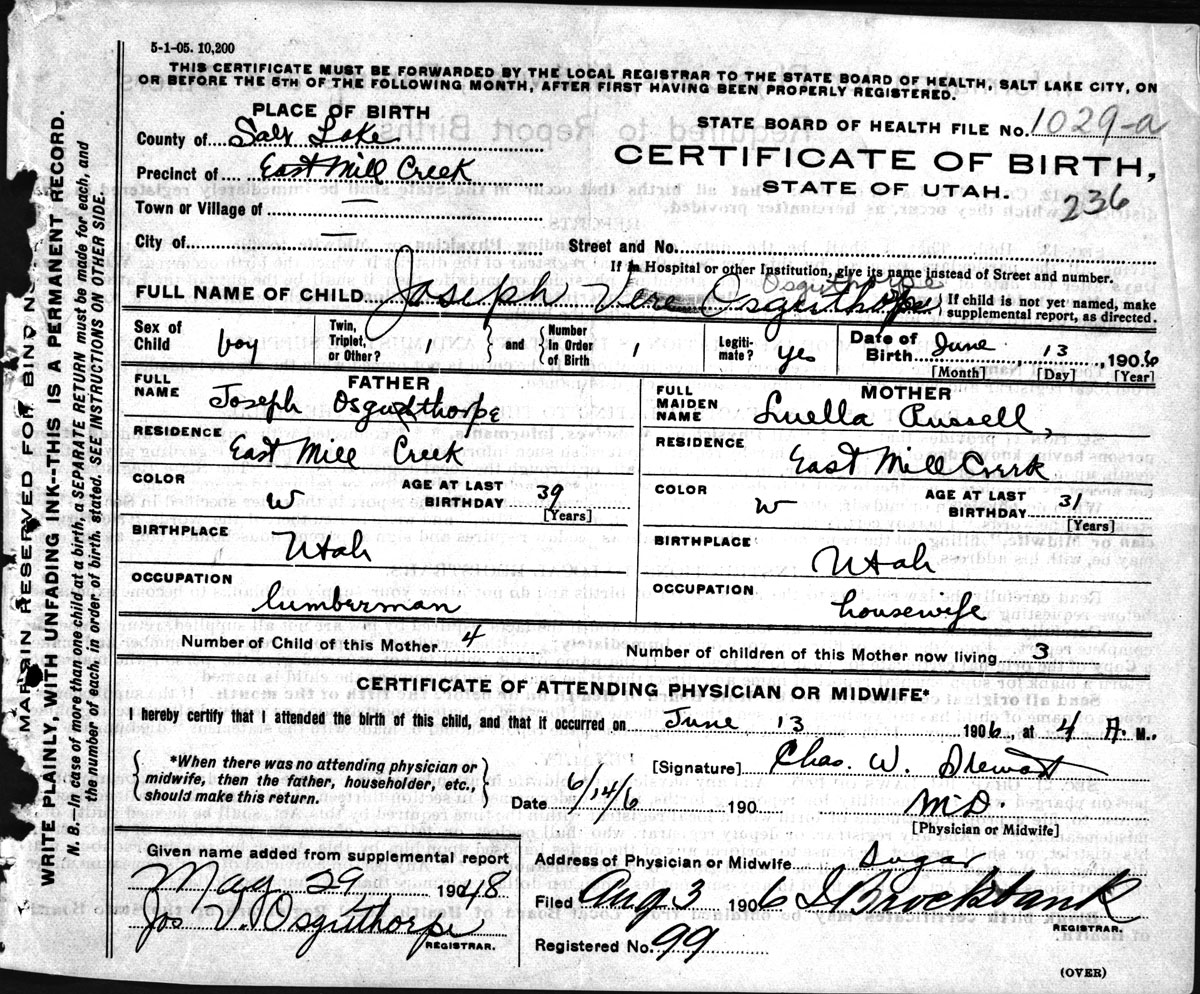 5-1-05. 10,200
THIS CERTIFICATE MUST BE FORWARDED BY THE LOCAL REGISTRAR TO THE STATE BOARD OF HEALTH, SALT LAKE CITY, ON
OR BEFORE THE 5TH OF THE FOLLOWING MONTH, AFTER FIRST HAVING BEEN PROPERLY REGISTERED.
PLACE OF BIRTH
County of Salt Lake
STATE BOARD OF HEALTH FILE No. 1029-a
Precinct of East Mill Creek
CERTIFICATE OF BIRTH,
STATE OF UTAH.
236
Town or Village of —
City of — Street and No.
If in Hospital or other Institution, give its name instead of Street and number.
Osguthorpe
FULL NAME OF CHILD Joseph Vere Osguthorpe { If child is not yet named, make
supplemental report, as directed.
Sex of Child boy Twin, Triplet, or Other? 1 } and { Number in Order of Birth 1 Legiti- mate? yes Date of Birth June, 13, 1906
[Month] [Day] [Year]
FATHER
FULL NAME Joseph Osguthorpe
RESIDENCE East Mill Creek
COLOR W AGE AT LAST BIRTHDAY 39
[Years]
BIRTHPLACE Utah
OCCUPATION lumberman
MOTHER
FULL MAIDEN NAME Luella Russell,
RESIDENCE East Mill Creek
COLOR W AGE AT LAST BIRTHDAY 31
[Years]
BIRTHPLACE Utah
OCCUPATION housewife
Number of Child of this Mother 4 Number of children of this Mother now living 3
CERTIFICATE OF ATTENDING PHYSICIAN OR MIDWIFE*
I hereby certify that I attended the birth of this child, and that it occurred on June 13 1906, at 4 A. M.
{ *When there was no attending physician or
midwife, then the father, householder, etc.,
should make this return. }
[Signature] Chas. W. Stewart
Date 6/14/6 190 M.D.
[Physician or Midwife]
Given name added from supplemental report
May 29 1948
Jos V. Osguthorpe
REGISTRAR.
Address of Physician or Midwife Sugar
Filed Aug 3 1906 Brockbank
REGISTRAR.
Registered No. 99
(OVER)
MARGIN RESERVED FOR BINDIN
WRITE PLAINLY, WITH UNFADING INK--THIS IS A PERMANENT RECORD.
N. B.—In case of more than one child at a birth, a SEPARATE RETURN must be made for each, and
the number of each, in order of birth, stated. SEE INSTRUCTIONS ON OTHER SIDE.